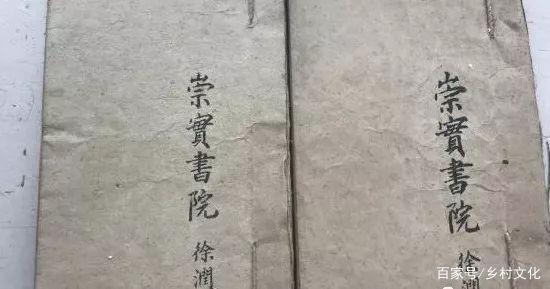 崇實書院
徐潤
崇實書院
徐潤
百家号/乡村文化